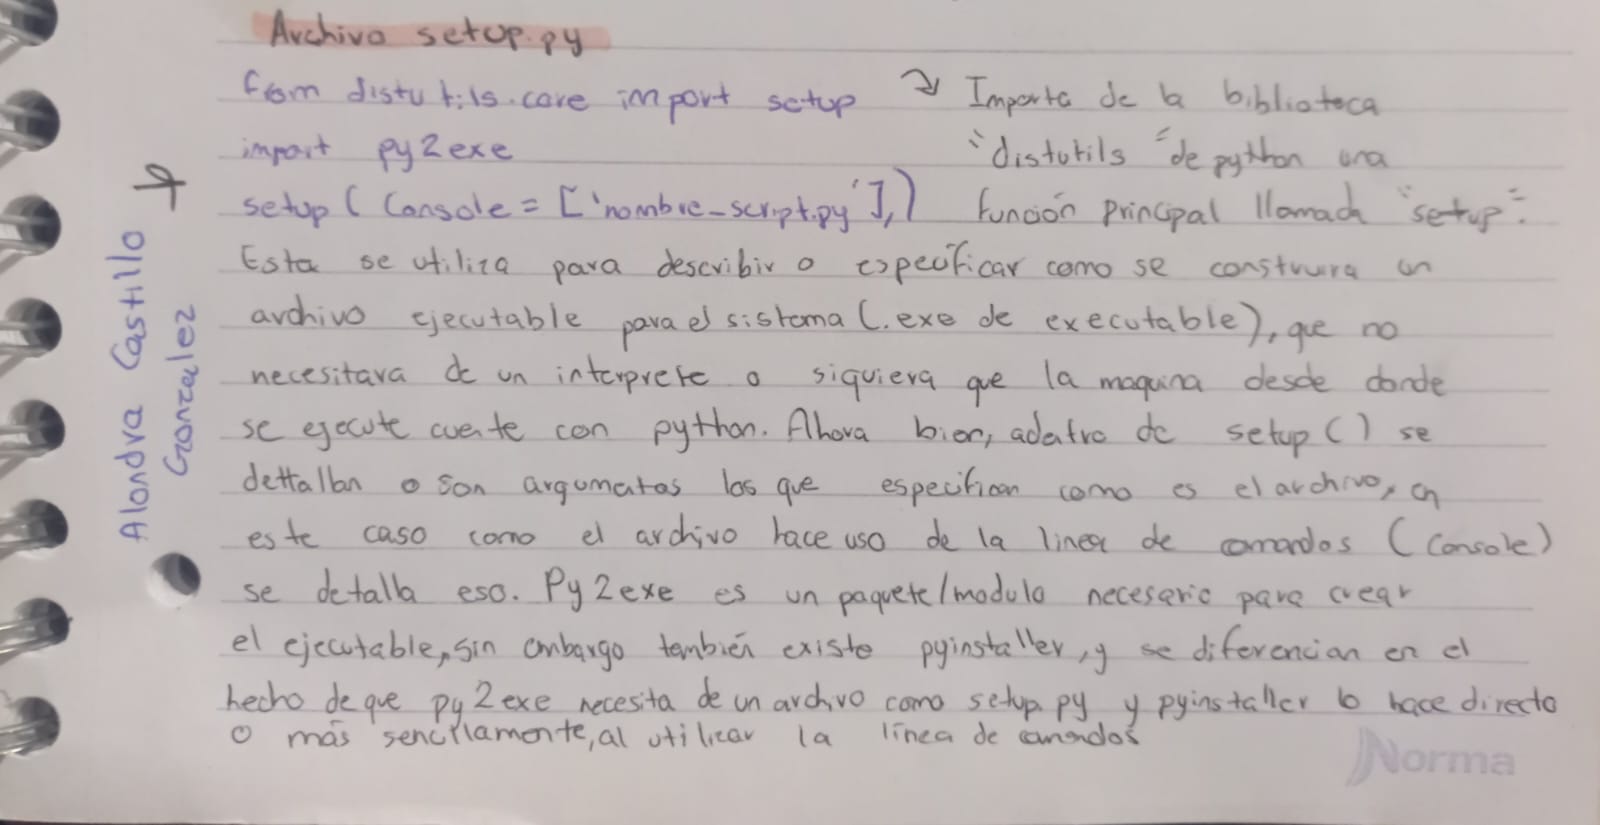 Archivo setup.py
from distutils.core import setup
import py2exe
setup ( Console = ['nombre-script.py'],)
↴ Importa de la biblioteca
"distutils" de python una
función principal llamada "setup".
Esta se utiliza para describir o especificar como se construira un
archivo ejecutable para el sistema (.exe de executable), que no
necesitara de un interprete o siquiera que la maquina desde donde
se ejecute cuente con python. Ahora bien, adentro de setup () se
dettallan o son argumentos los que especifican como es el archivo, en
este caso como el archivo hace uso de la linea de comandos (Console)
se detalla eso. Py2exe es un paquete/modulo necesario para crear
el ejecutable, sin embargo también existe pyinstaller, y se diferencian en el
hecho de que py2exe necesita de un archivo como setup.py y pyinstaller lo hace directo
o más sencillamente, al utilizar la línea de comandos
Alondra Castillo
Gonzalez
Norma